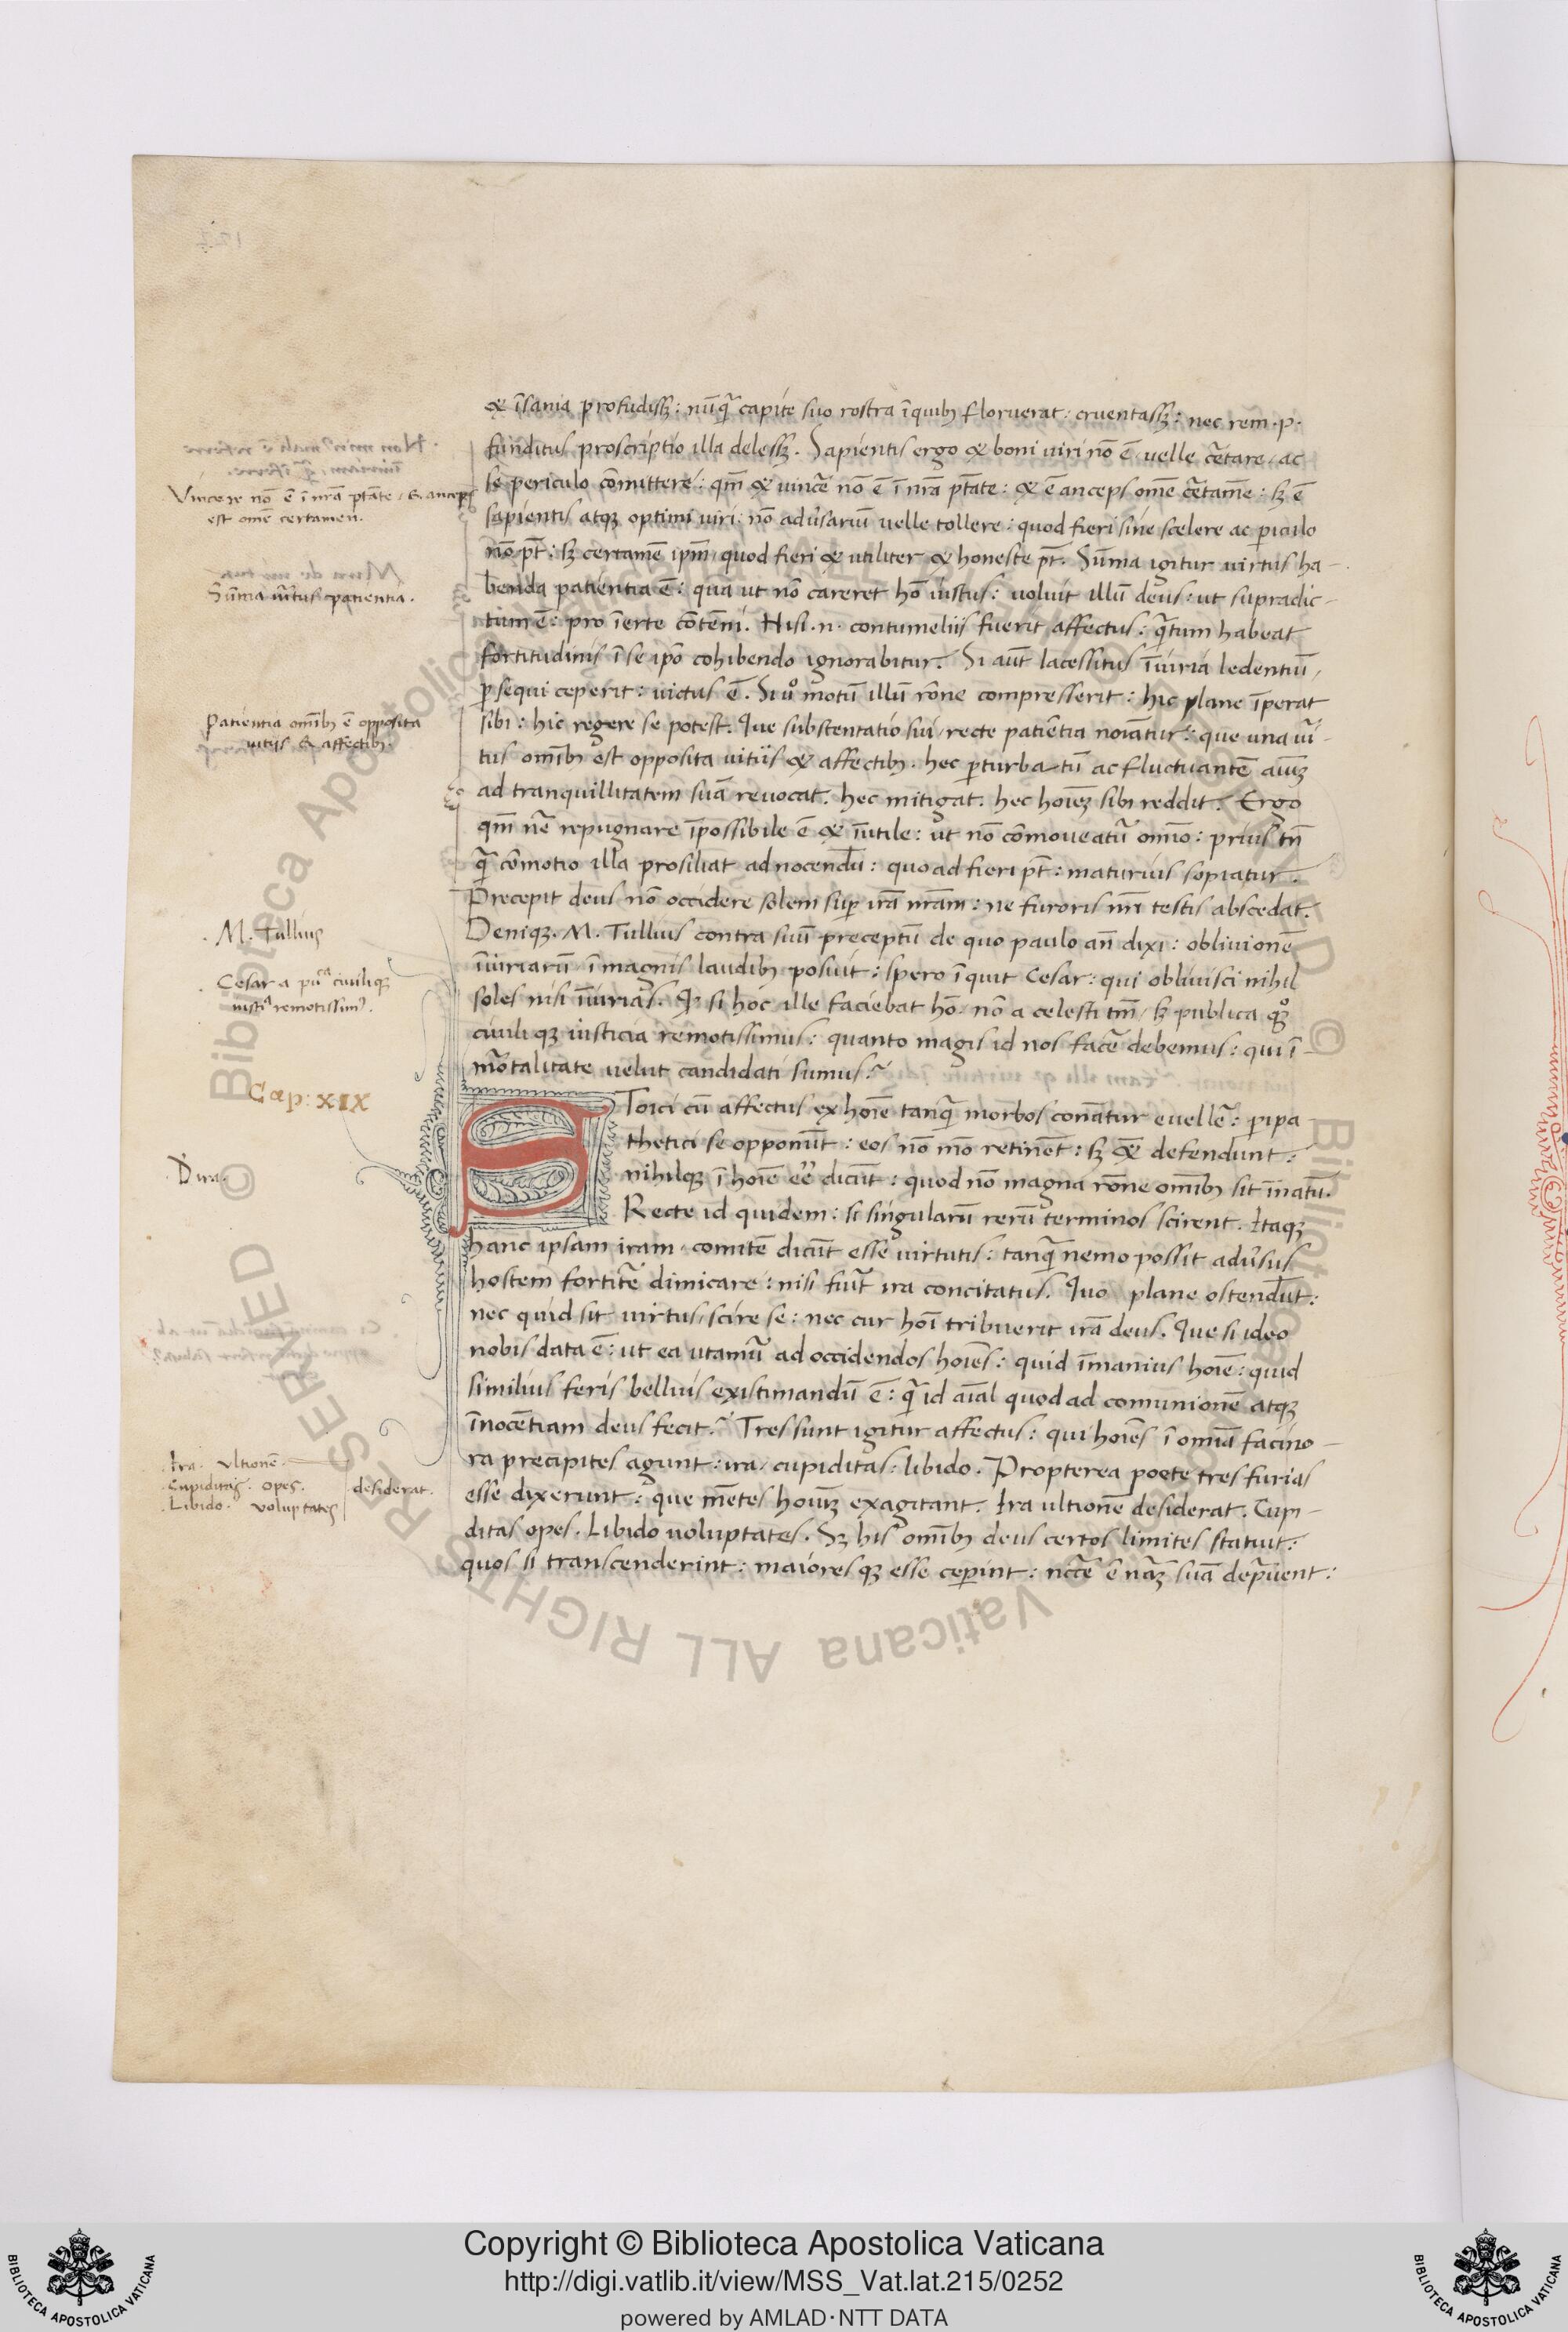 ⁊ īsania profudissꝫ: nūq̄ capite suo rostra īquibꝫ floruerat: cruentassꝫ: nec rem .p.
funditus proscriptio illa delessꝫ. Sapientis ergo ⁊ boni uiri nō ē uelle c̄tare, ac
se periculo cōmittere: qm̄ ⁊ uinc̄e nō ē ī nr̄a ptāte: ⁊ ē anceps om̄e c̄tamē: sꝫ ē
sapientis atqꝫ optimi uiri: nō adu̾sariū uelle tollere: quod fieri sine scelere ac piculo
nō pt̄: sꝫ certamē ipm̄, quod fieri ⁊ utiliter ⁊ honeste pt̄. Sūma igitur uirtus ha-
benda patientia ē: quā ut nō careret hō iustus: uoluit illū deus: ut supradic-
tum ē: pro īerte cōtēni. Nisi .n. contumeliis fuerit affectus: q̄tum habeat
fortitudinis ī se ipō cohibendo ignorabitur. Si aūt lacessitus īiuria ledentiū,
psequi ceperit: uictus ē. Si uº motū illū rōne compresserit: hic plane īperat
sibi: hic regere se potest. Que substentatio sui, recte patiētia noiātur: que una ui-
tus omībꝫ est opposita uitiis ⁊ affectibꝫ. hec pturbatū ac fluctuantē aīūꝫ
ad tranquillitatem suā reuocat. hec mitigat. hec hoīeꝫ sibi reddit. Ergo
qm̄ nc̄e repugnare īpossibile ē ⁊ īutile: ut nō cōmoueatū omīo: prius tn̄
q̄ cōmotio illa prosiliat ad nocendū: quo ad fieri pt̄: maturius sopiatur.
Precepit deus nō occidere solem sup irā nr̄am: ne furoris nr̄i testis abscedat.
Deniqꝫ. M. Tullius contra suū preceptū de quo paulo an̄ dixi: obliuionē
īiuriarū ī magnis laudibꝫ posuit: spero īquit Cesar: qui obliuisci nihil
soles nisi īiurias. Q si hoc ille faciebat hō nō a celesti tm̄, sꝫ publica qꝫº
ciuiliqꝫ iusticia remotissimus: quanto magis id nos fac̄e debemus: qui ī-
mōrtalitate uelut candidati sumus?
Cap: XIX
Stoici cū affectus ex hoīe tanq̄ morbos conātur euellē: pipa
thetici se opponūt: eos nō mō retinēt: sꝫ ⁊ defendunt:
nihilqꝫ ī hoīe eē dicūt: quod nō magna rōne omībꝫ sit īnatū.
Recte id quidem: si singularū rerū terminos scirent. Itaqꝫ
hanc ipsam iram, comitē dicūt esse uirtutis: tanq̄ nemo possit adu̾sus
hostem fortit̄e dimicare: nisi fuīt ira concitatus. Quo plane ostendūt:
nec quid sit uirtus, scire se: nec cur hoī tribuerit irā deus. Que si ideo
nobis data ē: ut ea utamū ad occidendos hoīes: quid īmanius hoīe: quid
similius feris belluis existimandū ē: q̄ id aīal quod ad comunionē atqꝫ
īnocētiam deus fecit? Tres sunt igitur affectus: qui hoīes ī omīa facino-
ra precipites agunt: ira, cupiditas: libido. Propterea poete tres furias
esse dixerunt: que mētes hoīūꝫ exagitant. Ira ultionē desiderat. Cupi-
ditas opes. Libido uoluptates. Sꝫ his omībꝫ deus certos limites statuit:
quos si transcenderint: maioresqꝫ esse cepint: nc̄ce ē nāꝫ suā dep̄uent:
Vincere nō ē ī nr̄a ptāte, & anceps
est omē certamen.
Sūma uītus patientia.
Patientia omībꝫ ē opposita
uitiis & affectibꝫ.
M. Tullius
Cesar a pu̅ca ciuiliqꝫ
iustia remotissimꝰ.
D ira.
Ira. ultionē.
Cupiditas. opes. desiderat.
Libido. uoluptates
Copyright © Biblioteca Apostolica Vaticana
http://digi.vatlib.it/view/MSS_Vat.lat.215/0252
powered by AMLAD·NTT DATA
BIBLIOTECA APOSTOLICA VATICANA
BIBLIOTECA APOSTOLICA VATICANA